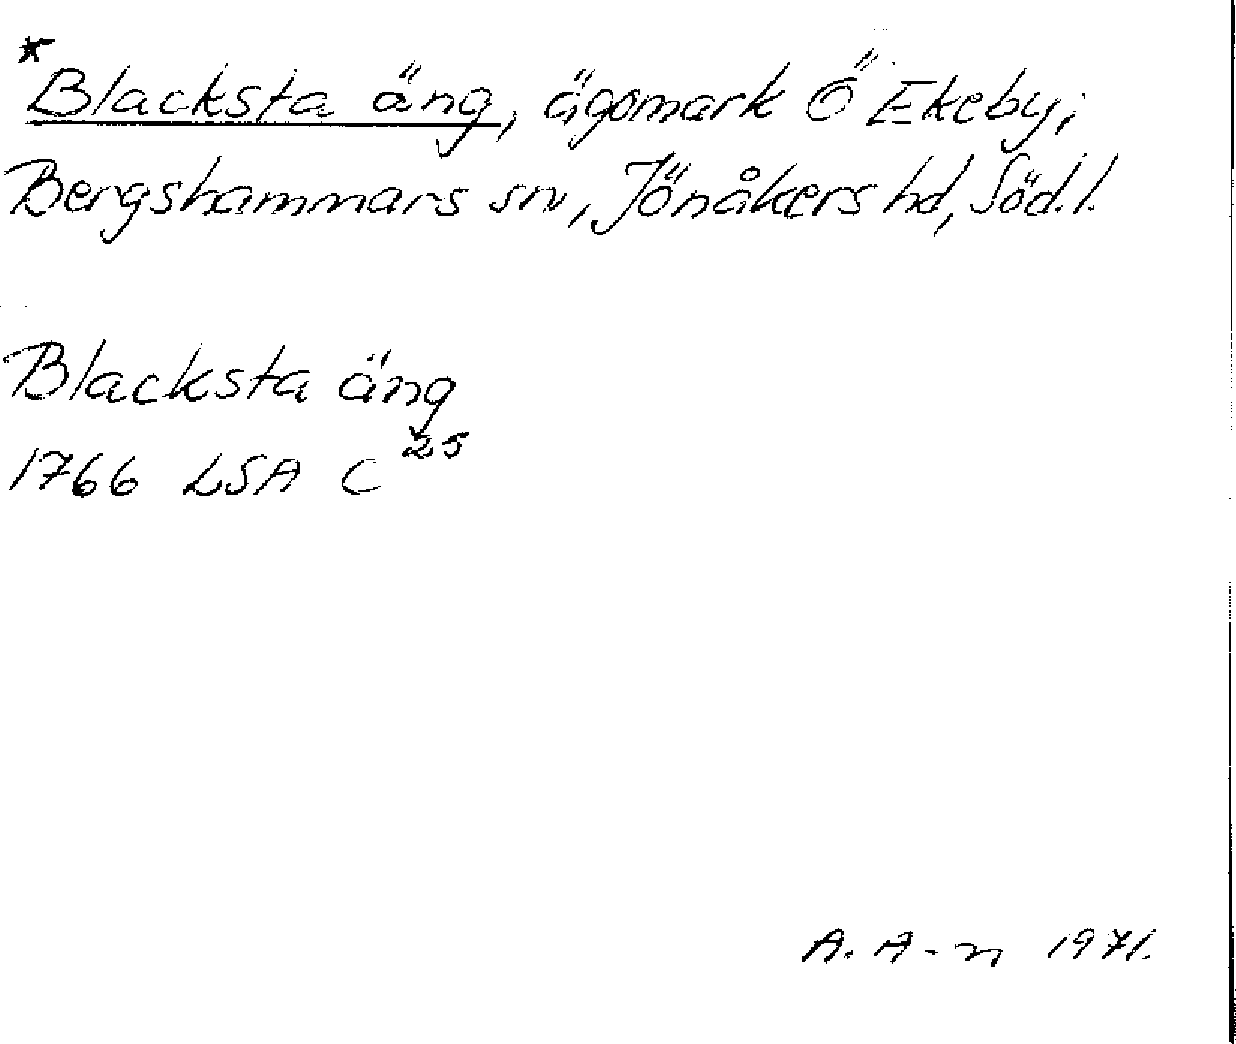 *Blacksta äng, ägomark Ö Ekeby,
Bergshammars sn, Jönåkers hd, Söd.l.
Blacksta äng
1766 LSA C 25
A. A-n 1971.